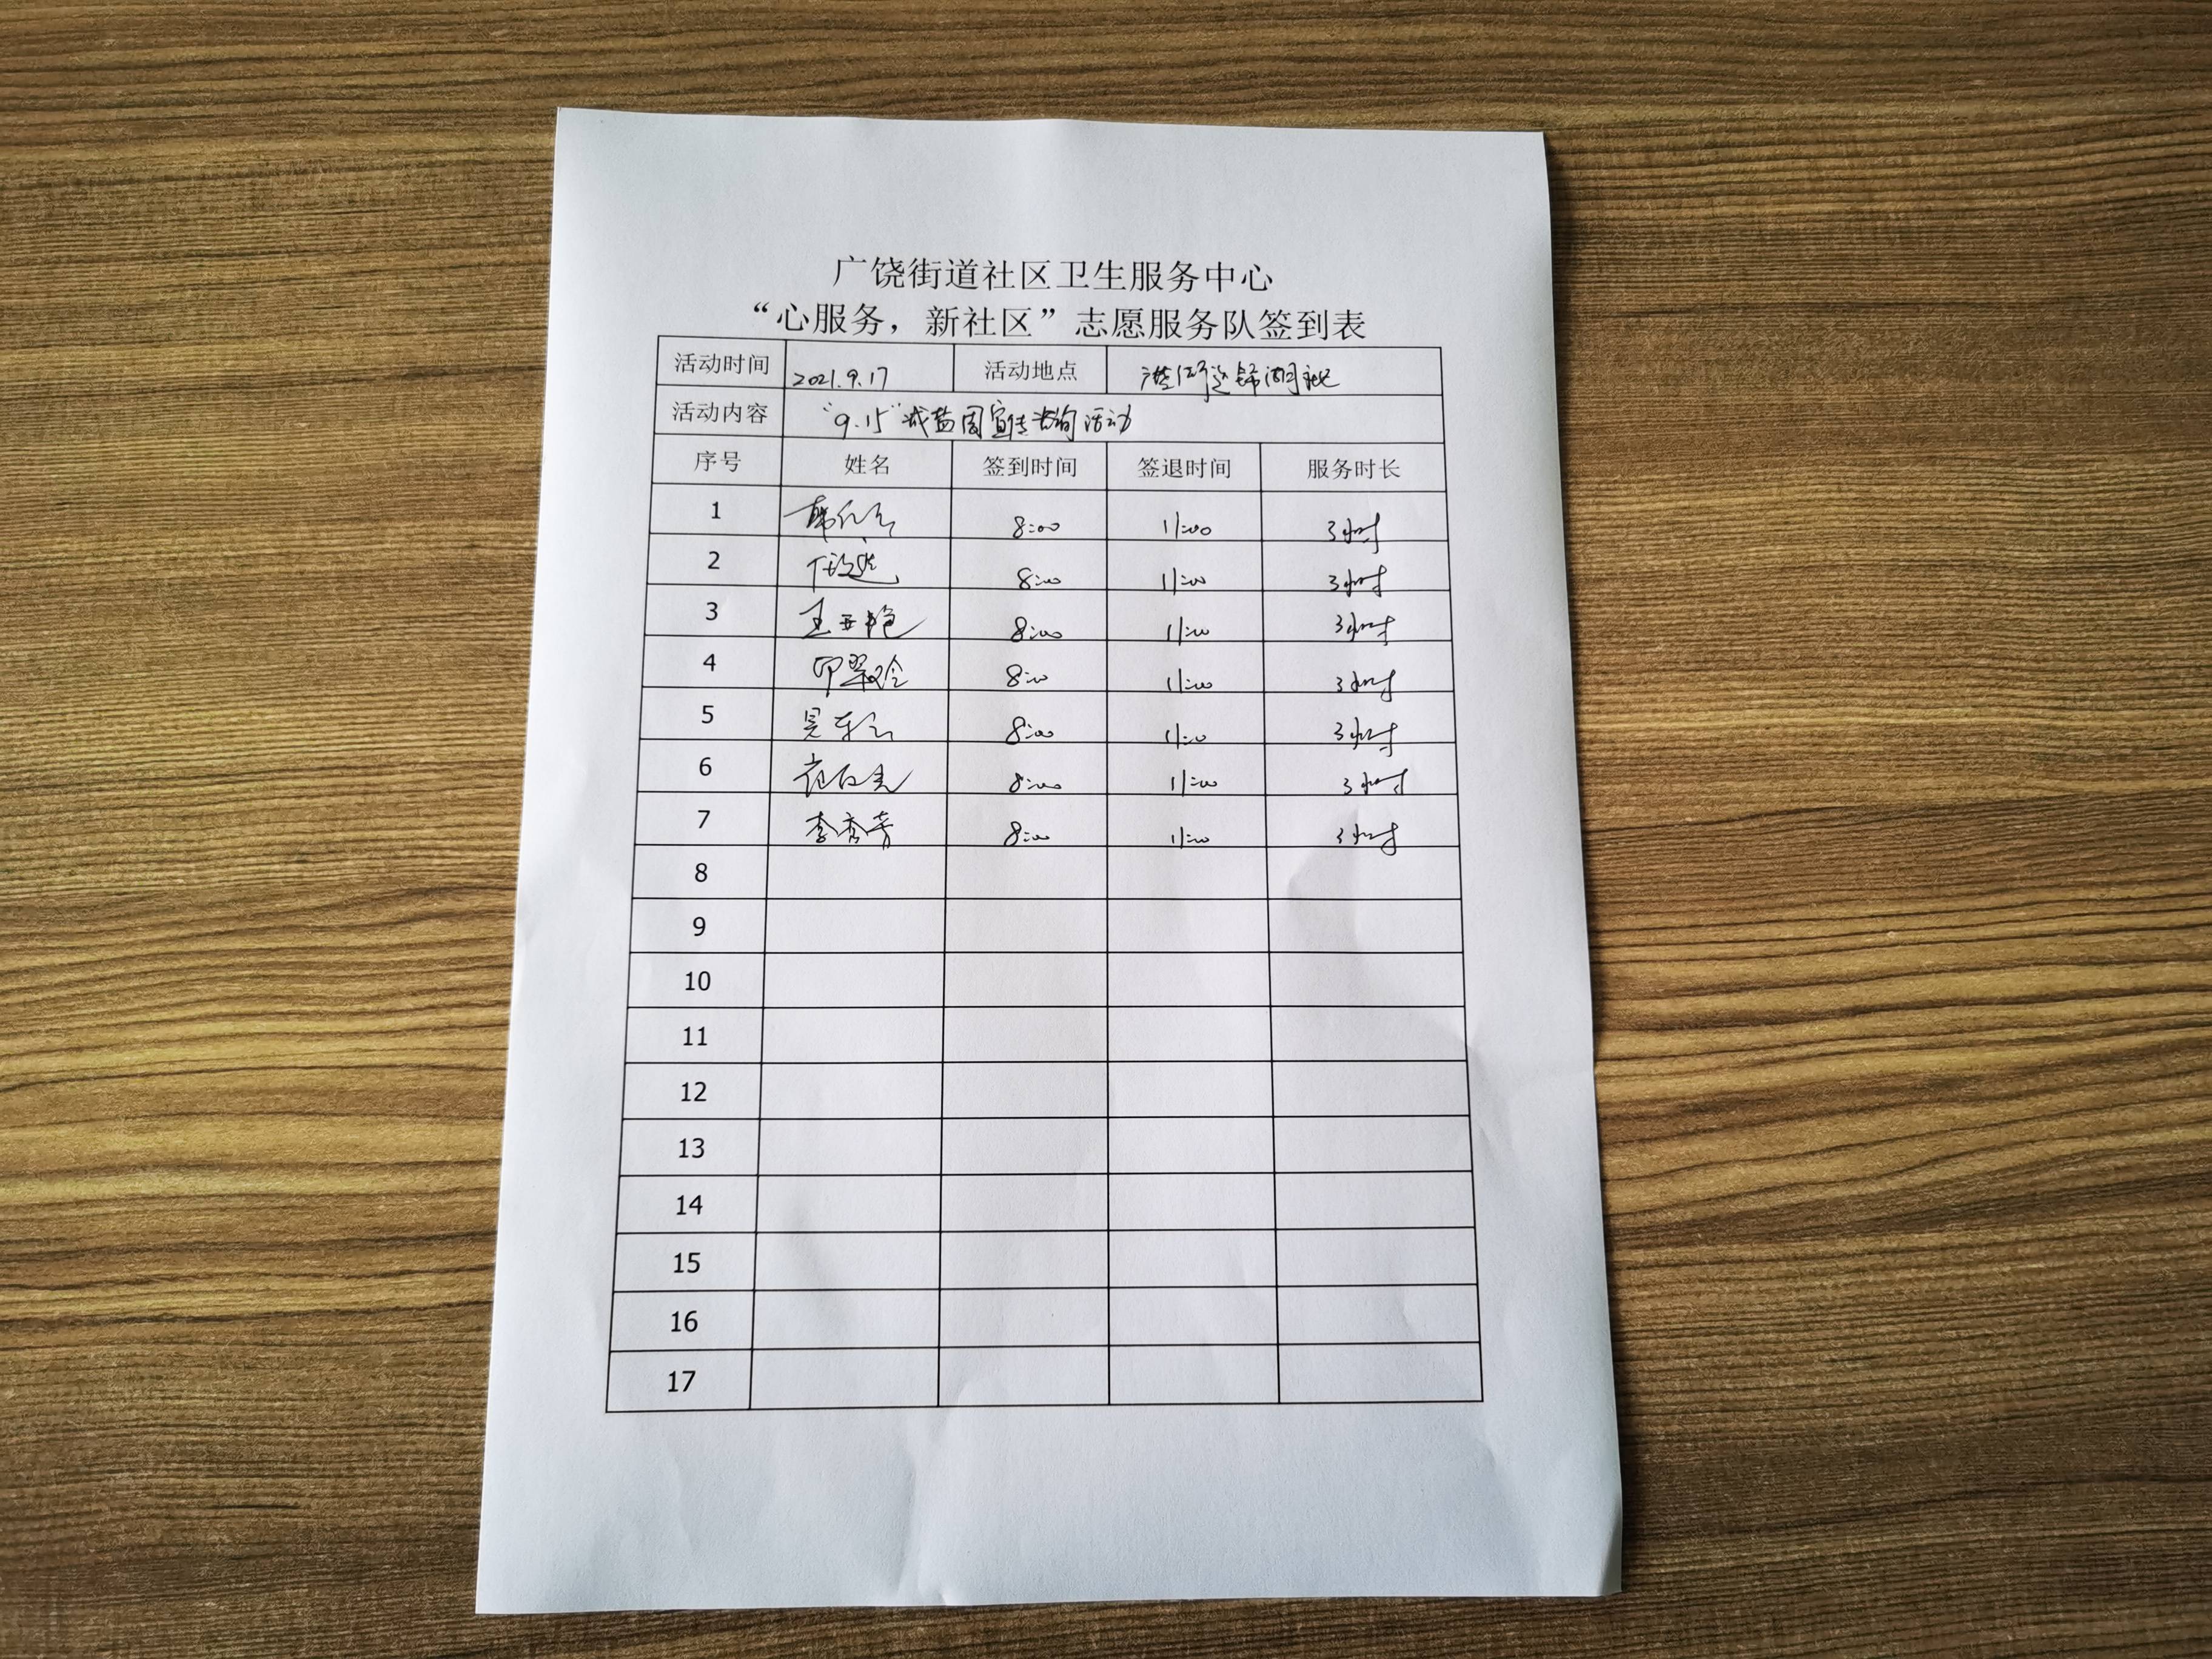 广饶街道社区卫生服务中心
“心服务，新社区”志愿服务队签到表
活动时间 2021.9.17 活动地点 锦湖社区
活动内容 “9.15”减盐周宣传咨询活动
序号 姓名 签到时间 签退时间 服务时长
1 8:00 11:00 3小时
2 8:00 11:00 3小时
3 王亚艳 8:00 11:00 3小时
4 8:00 11:00 3小时
5 8:00 11:00 3小时
6 8:00 11:00 3小时
7 李秀芳 8:00 11:00 3小时
8
9
10
11
12
13
14
15
16
17